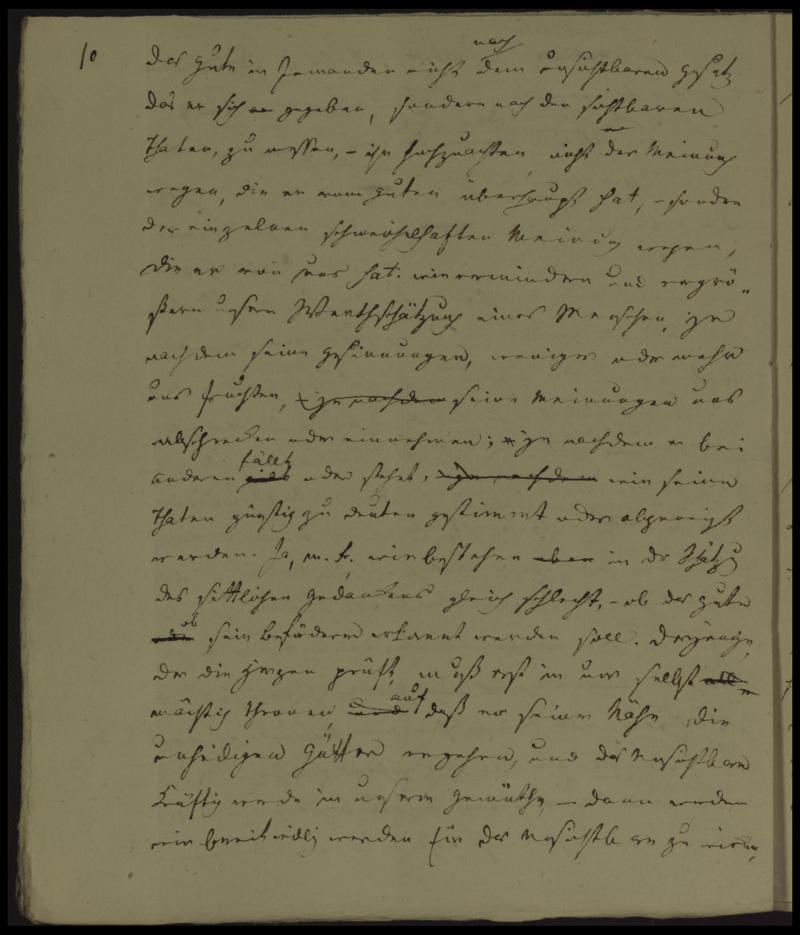 10
das gute in Jemanden nicht nach dem unsichtbaren gesetz
das er sich gegeben, sondern nach den sichtbaren
Thaten, zu messen, – ihn hochzuachten, nicht der Meinung
wegen, die er vom guten überhaupt hat, – sondern
der einzelnen schmeichelhaften Meinung wegen,
die er von uns hat. wir vermindern und vergrö„
ßern unsere Werthschätzung eines Menschen, je
nachdem seine gesinnungen, weniger oder mehr
uns fruchten, je nachdem seine Meinungen uns
abschrecken oder einnehmen; je nachdem er bei
anderen fällt oder steht, je nachdem wir seine
Thaten günstig zu deuten gestimmt oder abgeneigt
werden. Ja, m. Fr. wir bestehen eben in der
des sittlichen gedankens gleich schlecht, – ob das gute
ob sein beförderer erkannt werden soll. Derjenige,
der die Herzen prüft, muß erst in uns selbst all„
mächtig thronen, und auf daß vor seiner Nähe, die
Götter vergehen, und das Unsichtbare
kräftig werde in unserm gemüthe, – dann werden
wir bereitwillig werden für das Unsichtbare zu